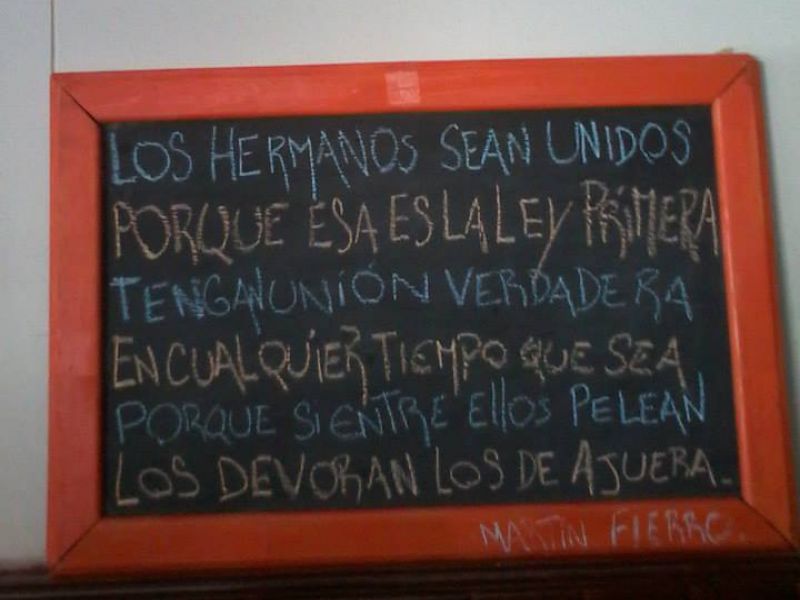 LOS HERMANOS SEAN UNIDOS
PORQUE ESA ES LA LEY PRIMERA
TENGAN UNIÓN VERDADERA
EN CUALQUIER TIEMPO QUE SEA
PORQUE SI ENTRE EllOS PELEAN
LOS DEVORAN LOS DE AJUERA.
MARTIN FIERRO.